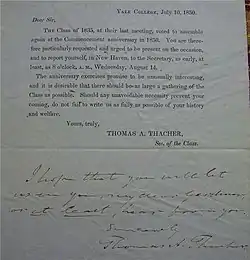 YALE COLLEGE, July 10, 1850.
Dear Sir,
THE Class of 1835, at their last meeting, voted to assemble
again at the Commencement anniversary in 1850. You are there-
fore particularly requested and urged to be present on the occasion,
and to report yourself, in New Haven, to the Secretary, as early, at
least, as 8 o'clock, A. M., Wednesday, August 14.
The anniversary exercises promise to be unusually interesting,
and it is desirable that there should be as large a gathering of the
Class as possible. Should any unavoidable necessity prevent your
coming, do not fail to write us as fully as possible of your history
and welfare.
Yours, truly,
THOMAS A. THACHER,
Sec. of the Class.
I hope that you will let
us see you
or at least, hear from you
Sincerely
Thomas A. Thacher